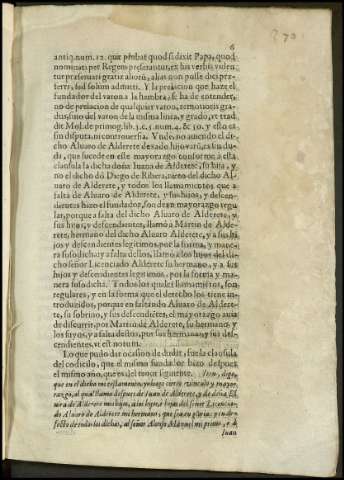 6
270
antiq. num. 12. que probat quod si daxit Papa, quod
nominati per Regem præsentantur, ex his verbis viden
tur præsentari gratia aliorũ, alias non posse dici præ-
ferri, sed solum admitti. Y la prelacion que haze el
fundador del varon a la hembra, se ha de entender,
no de prelacion de qualquier varon, remotioris gra-
dus, sino del varon de la misma linea, y grado, vt tradi
dit Mol. de primog. lib. 3. c. 5. num. 4. & 10. y esto es
sin disputa, ni controuersia. Vnde, no auiendo el di-
cho Aluaro de Alderete dexado hijo varõ, es sin du
da, que sucede en este mayorazgo conforme a esta
clausula la dicha doña Iuana de Alderete, su hija, y
no el dicho dõ Diego de Ribera, nieto del dicho Al
uaro de Alderete, y todos los llamamientos que a
falta de Aluaro de Alderete, y sus hijos, y descen-
dientes hizo el fundador, son de vn mayorazgo regu
lar, porque a falta del dicho Aluaro de Alderete, y
sus hijos, y descendientes, llamò a Martin de Alde-
rete, hermano del dicho Aluaro de Alderete, y a sus hi
jos y descendientes legitimos, por la forma, y mane-
ra susodicha: y a falta dellos, llamò a los hijos del di-
cho señor Licenciado Alderete su hermano, y a sus
hijos y descendientes legitimos, por la forma y ma-
nera susodicha. Todos los quales llamamiẽtos, son
regulares, y en la forma que el derecho los tiene in-
troduzidos, porque en faltando Aluaro de Aldere-
te, su sobrino, y sus descendiẽtes, el mayorazgo auia
de discurrir, por Martin de Alderete, su hermano, y
los suyos, y a falta destos, por sus hermanos, y sus des-
cendientes, vt est notum.
Lo que pudo dar ocasion de dudar, fue la clausula
del codicilo, que el mismo fundador hizo despues
el mismo año, que es del tenor siguiente. Item, digo,
que en el dicho mi testamento, yo hago cierto vinculo y mayo-
razgo, al qual llamo despues de Iuan de Alderete, y de doña El
uira de Alderete mis hijos, a los hijos, è hijas del señor Licencia-
do Aluaro de Alderete mi hermano, que sea en gloria: y en de-
fecto de todos los dichos, al señor Alonso Maldonado mi primo, y à
Iuan